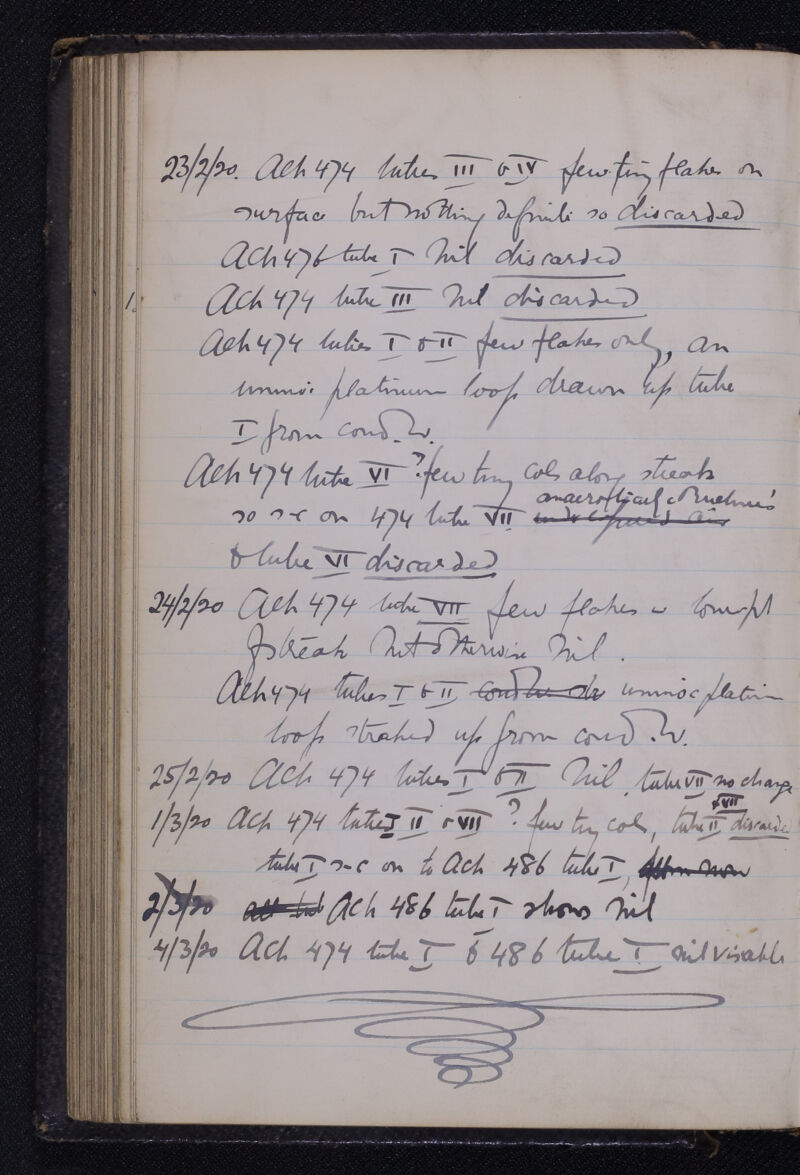 23/2/20. Ach 474 tubes III & IV few tiny flakes on
surface but nothing definite so discarded
Ach 476 tube I Nil discarded
1.
Ach 474 tube III Nil discarded
Ach 474 tubes I & II few flakes only, an
platinum loop drawn up tube
I from cond. W.
Ach 474 tube VI ? few tiny cols along streak
so s-c on 474 tube VII anaerobically
& tube VI discarded
24/2/20 Ach 474 tube VII few flakes
of streak but otherwise Nil.
Ach 474 tubes I & II platin
loop streaked up from cond. W.
25/2/20 Ach 474 tubes I & II Nil, tube VII no change
1/3/20 Ach 474 tubes I II & VII ? few tiny cols, tube II & VII discarded
tube I s-c on to Ach 486 tube I,
2/3/20 Ach 486 tube I shows Nil
4/3/20 Ach 474 tube I & 486 tube I nil visable